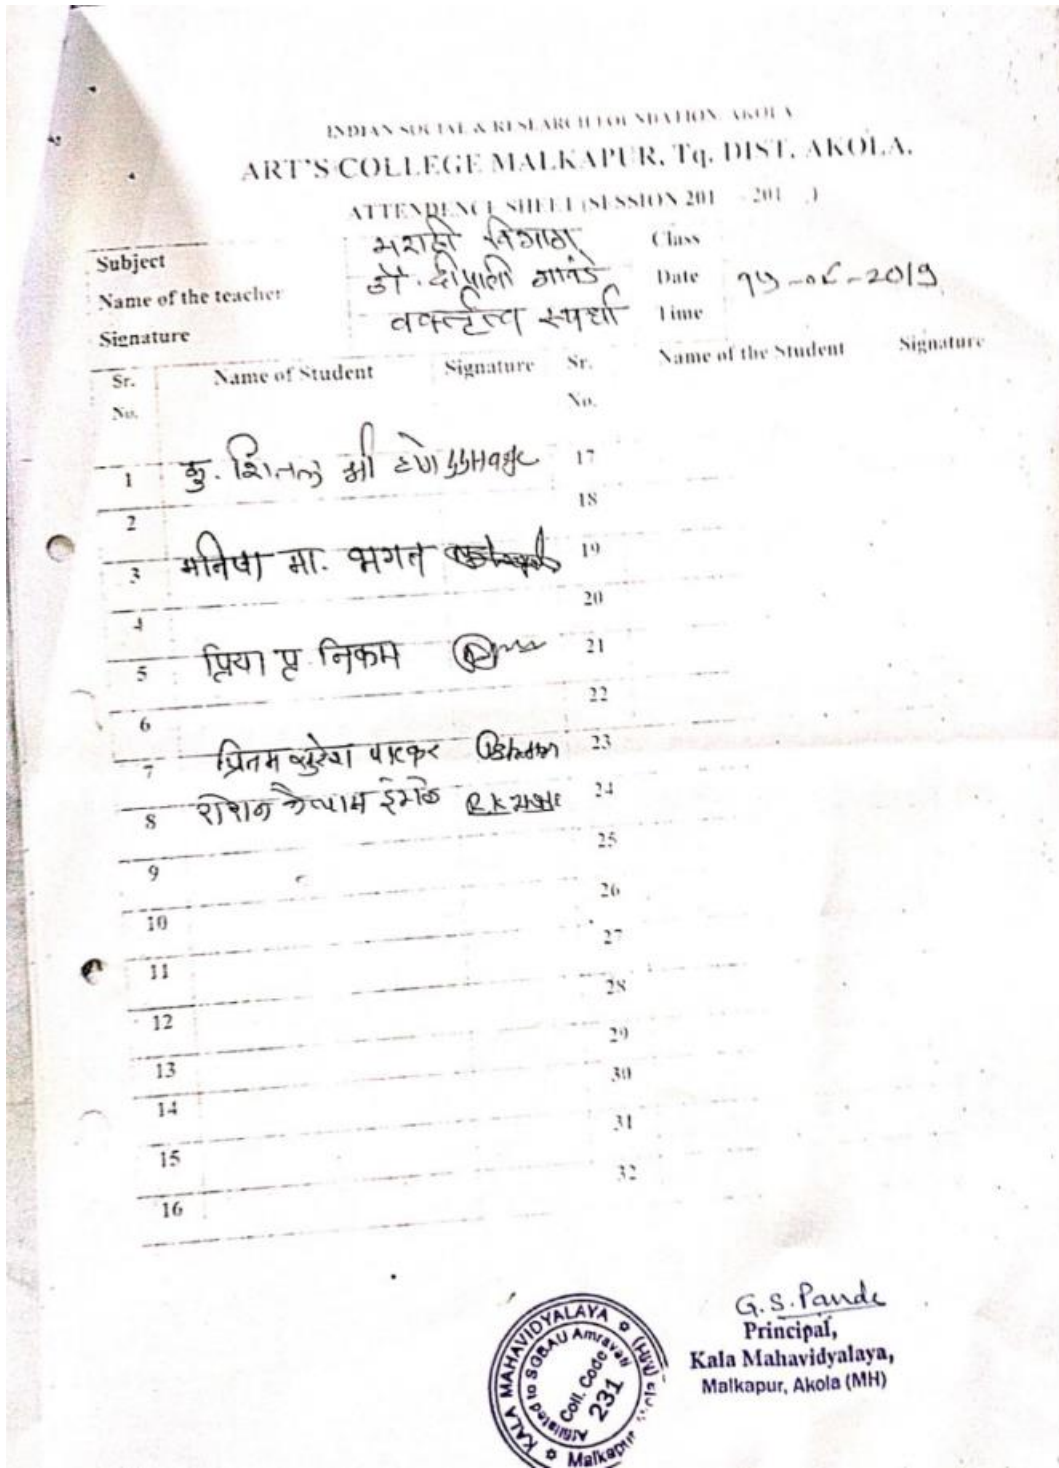 INDIAN SOCIAL & RESEARCH FOUNDATION AKOLA
ART'S COLLEGE MALKAPUR, Tq. DIST. AKOLA.
ATTENDENCE SHEET (SESSION 201 - 201 )
Subject मराठी विभाग Class
Name of the teacher डॉ. दीपाली गावंडे Date १५-०८-2019
Signature वक्तृत्व स्पर्धा Time
Sr. No. Name of Student Signature Sr. No. Name of the Student Signature
1 कु. शितल श्री 17
2 18
3 मनिषा मा. भगत 19
4 20
5 प्रिया प्र. निकम 21
6 22
7 प्रितम सुरेश पाटकर 23
8 रोशन कैलास इंगळे 24
9 25
10 26
11 27
12 28
13 29
14 30
15 31
16 32
G.S. Pande
Principal,
Kala Mahavidyalaya,
Malkapur, Akola (MH)
KALA MAHAVIDYALAYA
Affiliated to SGBAU Amravati
Coll. Code
231
Malkapur